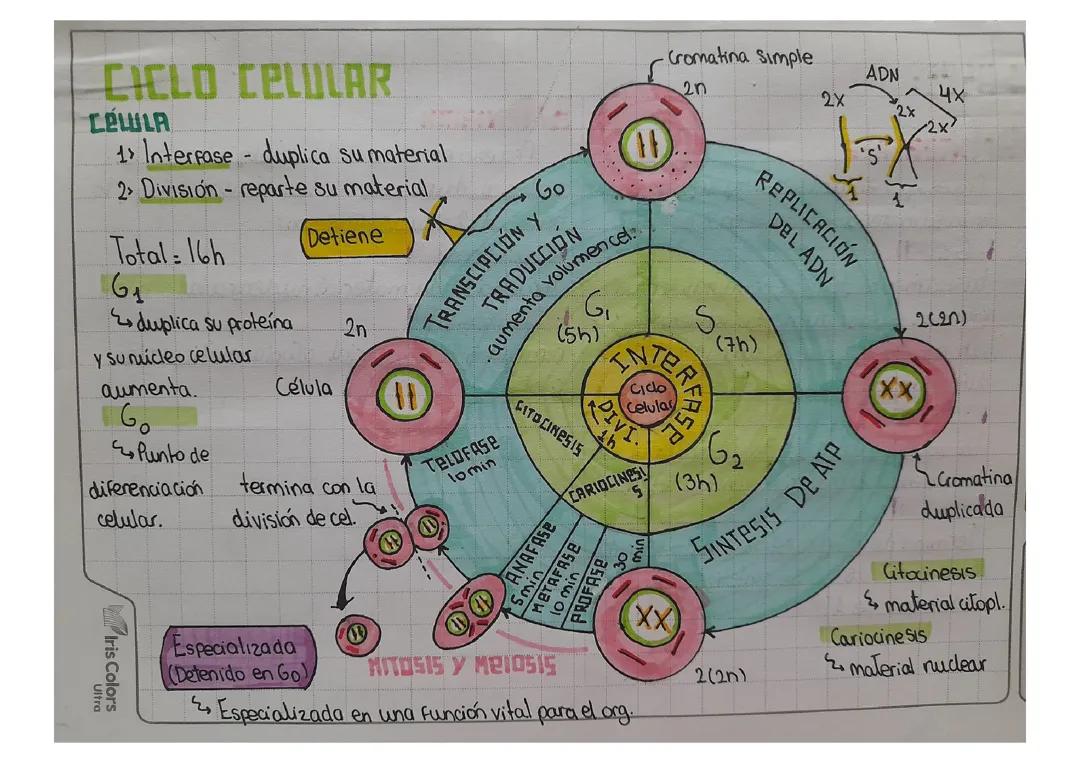 CICLO CELULAR
CÉLULA
1> Interfase - duplica su material
2> División - reparte su material
Detiene
Total = 16h
G1
↳ duplica su proteína
y su núcleo celular
aumenta.
G0
↳ Punto de
diferenciación
celular.
Cromatina simple
2n
ADN
2x
2x
4x
2x
'S'
1
1
G0
TRANSCIPCIÓN Y
TRADUCCIÓN
·aumenta volumen cel.
REPLICACIÓN
DEL ADN
2n
Célula
G1
(5h)
S
(7h)
2(2n)
INTERFASE
Ciclo
Celular
DIVI.
1h
G2
(3h)
CITOCINESIS
CARIOCINESIS
SINTESIS DE ATP
TELOFASE
10 min
ANAFASE
5 min
METAFASE
10 min
PROFASE
30 min
Cromatina
duplicada
termina con la
división de cel.
Citocinesis
↳ material citopl.
Cariocinesis
↳ material nuclear
2(2n)
MITOSIS Y MEIOSIS
Especializada
(Detenido en G0)
↳ Especializada en una función vital para el org.
Iris Colors
Ultra